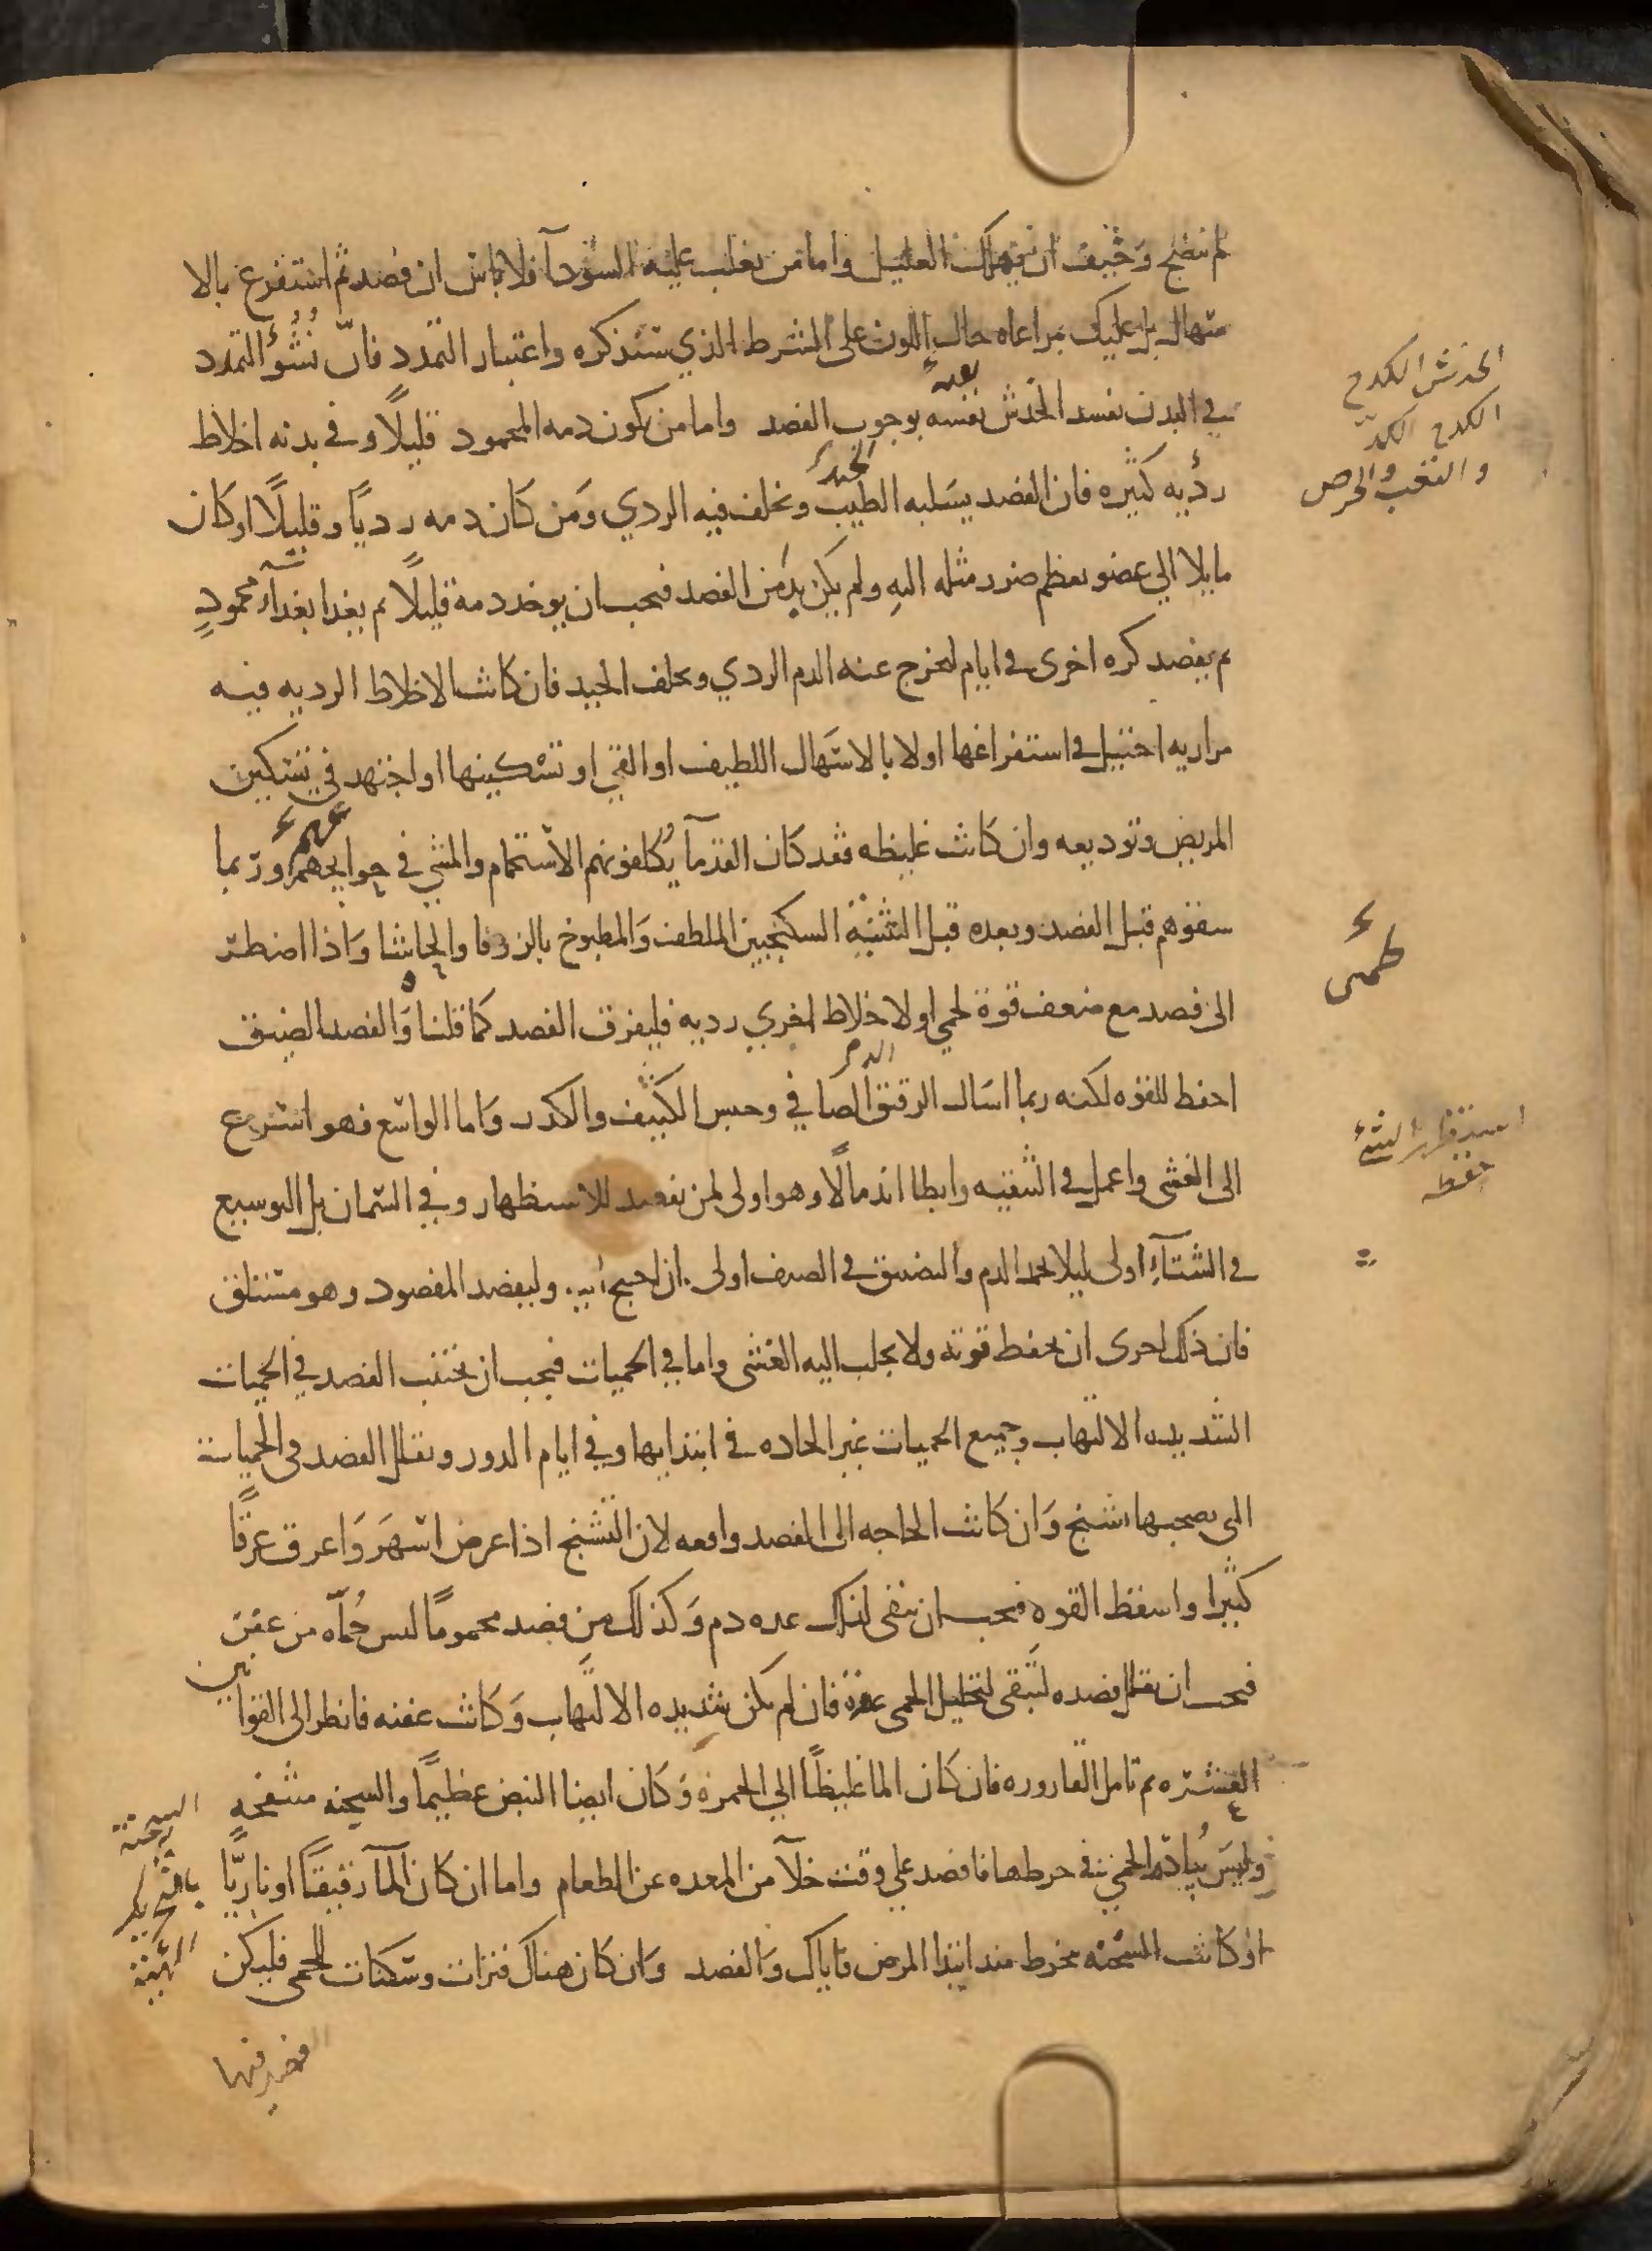 لم ينضج وخيف ان ينهك العليل واما من يغلب عليه السودآ فلا باس ان فصد ثم استفرغ بالا
سهال بل عليك بمراعاه حال اللون على الشرط الذي سنذكره واعتبار التمدد فان نُشُوُّ التمدد
في البدن يفسد الحدس نفسه بوجوب الفصد واما من يكون دمه المحمود قليلًا و في بدنه اخلاط
رديه كثيره فان الفصد يسلبه الطيب ويخلف فيه الردي ومن كان دمه رديًا و قليلًا او كان
مايلا الى عضو يعظم ضرر مثله اليه ولم يكن بد من الفصد فيجب ان يوخذ دمه قليلًا ثم يغدا بغداء محمودٍ
ثم يفصد كره اخرى في ايام ليخرج عنه الدم الردي ويخلف الجيد فان كانت الاخلاط الرديه فيه
مراريه احتيل في استفراغها اولا بالاسهال اللطيف او القي او تسكينها او اجتهد في تسكين
المريض وتوديعه وان كانت غليظه فقد كان القدمآ يُكلفونهم الاستحمام والمشي في حوايجهم وربما
سقوهم قبل الفصد وبعده قبل التثنيه السكنجبين الملطف والمطبوخ بالزوفا والحاشا واذا اضطر
الى فصد مع ضعف قوة لحمى او لاخلاط اخري رديه فليفرق الفصد كما قلنا والفصد الضيق
احفظ للقوه لكنه ربما اسال الرقيق الصافي وحبس الكثيف والكدر واما الواسع فهو اسرع
الى الغشى واعمل في التنقيه وابطا اندمالًا وهو اولى لمن يفصد للاستظهار وفي السمان بل التوسيع
في الشتآء اولى ليلا يجمد الدم والتضيق في الصيف اولى ان احتيج اليه وليفصد المفصود وهو مستلق
فان ذلك احرى ان يحفظ قوته ولا يجلب اليه الغشى واما في الحميات فيجب ان يجتنب الفصد في الحميات
الشديده الالتهاب وجميع الحميات غير الحاده في ابتدايها وفي ايام الدور ويقلل الفصد في الحميات
التى يصحبها تشنج وان كانت الحاجه الى الفصد واقعه لان التشنج اذا عرض اسهر واعرق عرقًا
كثيرا واسقط القوه فيجب ان يبقى لذلك عده دم وكذلك من فصد محمومًا ليس حُمّاه من عفن
فيجب ان يقلل فصده ليبقى لتحليل الحمى عدة فان لم يكن شديده الالتهاب وكانت عفنه فانظر الى القوانين
العشره ثم تامل القاروره فان كان الما غليظًا الى الحمرة وكان ايضا النبض عظيمًا والسحنه منتفخه
وليس يُبادر الحمى في حركتها فافصد علي وقت خلآ من المعده عن الطعام واما ان كان المآ رقيقًا او ناريًّا
او كانت السحنه تنخرط منذ ابتدا المرض فاياك والفصد وان كان هناك فترات وسكنات للحمى فليكن
الخدش الكدح
الكدح الكدّ
والتعب والحرص
بعينه
الجيد
الدم
استظهر الشئ
حفظه
السحنة
الهيئة
الفصد فيها